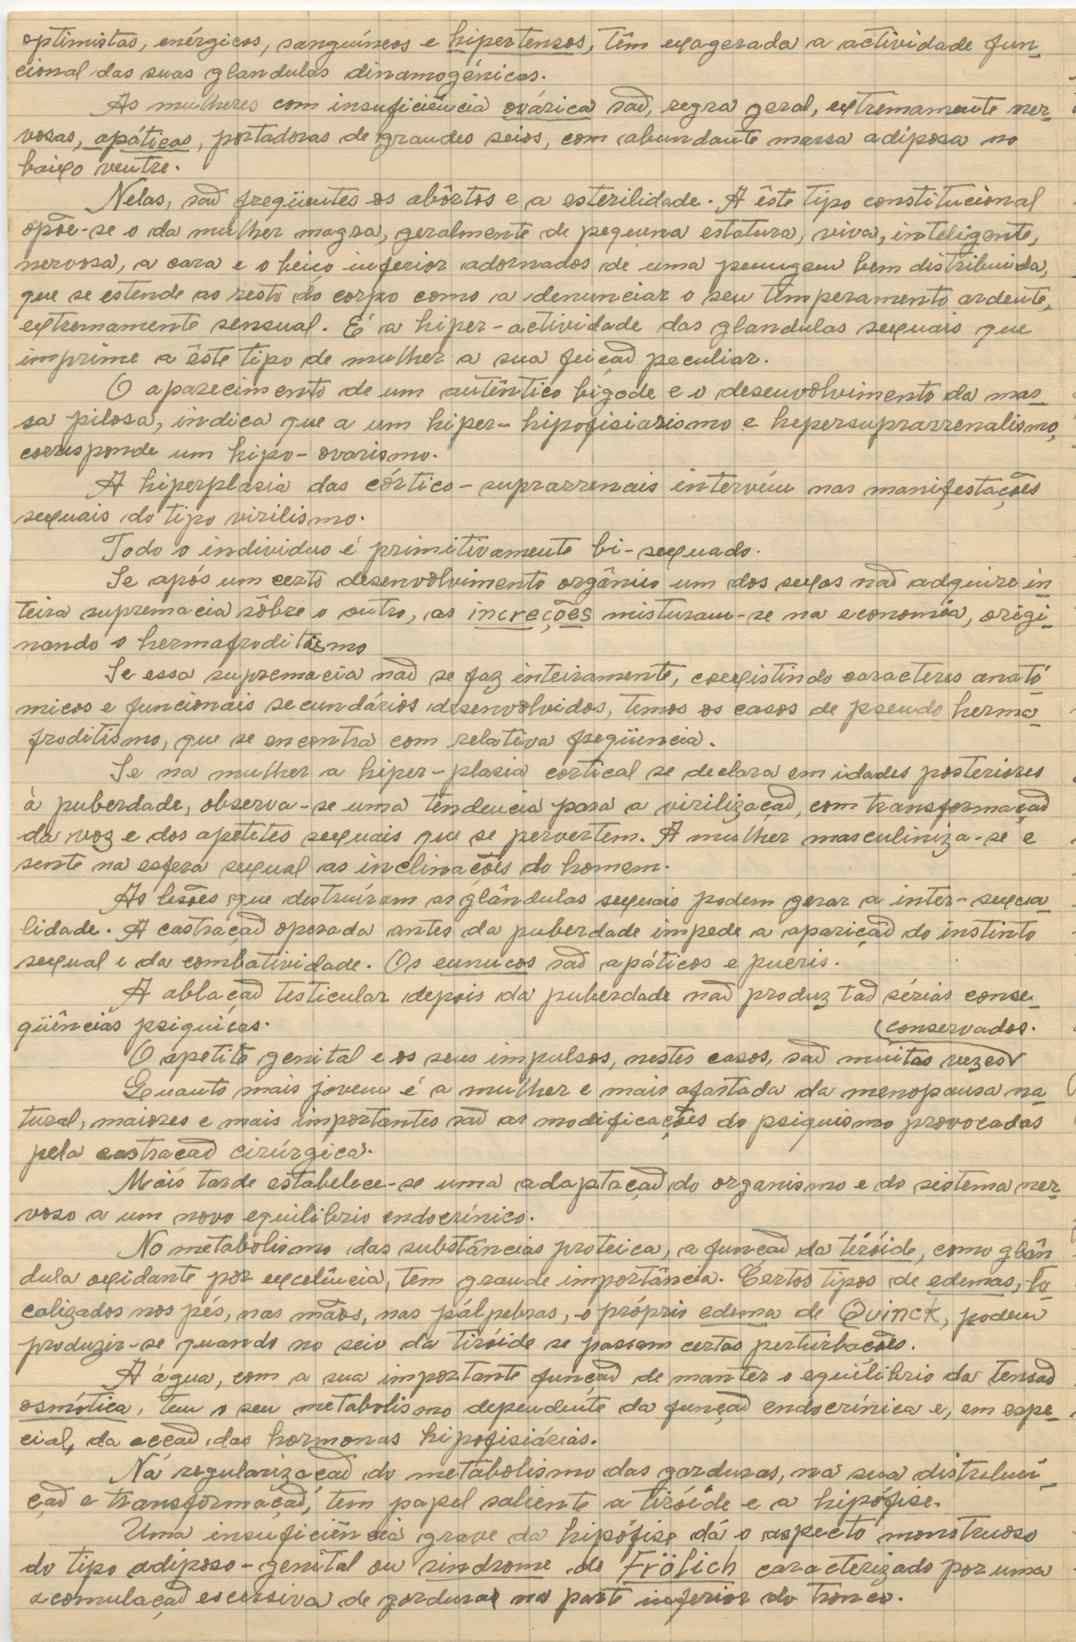 optimistas, enérgicos, sanguíneos e hipertensos, têm exagerada a actividade fun-
cional das suas glandulas dinamogénicas.
As mulheres com insuficiência ovárica são, regra geral, extremamente ner-
vosas, apáticas, portadoras de grandes seios, com abundante massa adiposa no
baixo ventre.
Nelas, são freqüentes os abôrtos e a esterilidade. A êste tipo constitucional
opõe-se o da mulher magra, geralmente de pequena estatura, viva, inteligente,
nervosa, a cara e o beiço inferior adornados de uma penugem bem distribuida,
que se estende ao resto do corpo como a denunciar o seu temperamento ardente,
extremamente sensual. É a hiper-actividade das glandulas sexuais que
imprime a êste tipo de mulher a sua feição peculiar.
O aparecimento de um autêntico bigode e o desenvolvimento da mas-
sa pilosa, indica que a um hiper-hipofisiarismo e hipersuprarrenalismo,
corresponde um hipo-ovarismo.
A hiperplasia das córtico-suprarrenais intervém nas manifestações
sexuais do tipo virilismo.
Todo o individuo é primitivamente bi-sexuado.
Se após um certo desenvolvimento orgânico um dos sexos não adquire in-
teira supremacia sôbre o outro, as increções misturam-se na economia, origi-
nando o hermafroditismo
Se essa supremacia não se faz inteiramente, coexistindo caracteres anató
micos e funcionais secundários desenvolvidos, temos os casos de pseudo herma-
froditismo, que se encontra com relativa freqüencia.
Se na mulher a hiper-plasia cortical se declara em idades posteriores
à puberdade, observa-se uma tendencia para a virilização, com transformação
da voz e dos apetites sexuais que se pervertem. A mulher masculiniza-se e
sente na esfera sexual as inclinações do homem.
As lesões que destruíram as glândulas sexuais podem gerar a inter-sexua-
lidade. A castração operada antes da puberdade impede a aparição do instinto
sexual e da combatividade. Os eunucos são apáticos e pueris.
A ablação testicular depois da puberdade não produz tão sérias conse-
qüências psiquicas.
(conservados.
O apetite genital e os seus impulsos, nestes casos, são muitas vezes
Quanto mais jovem é a mulher e mais afastada da menopausa na-
tural, maiores e mais importantes são as modificações do psiquismo provocadas
pela castração cirúrgica.
Mais tarde estabelece-se uma adaptação do organismo e do sistema ner-
voso a um novo equilibrio endocrínico.
No metabolismo das substâncias proteica, a função da tiróide, como glân
dula oxidante por excelência, tem grande importância. Certos tipos de edemas, lo-
calizados nos pés, nas mãos, nas pálpebras, o próprio edema de Quinck, podem
produzir-se quando no seio da tiróide se passam certas perturbações.
A água, com a sua importante função de manter o equilibrio da tensão
osmótica, tem o seu metabolismo dependente da função endocrínica e, em espe-
cial, da acção das hormonas hipofisiárias.
Na regularização do metabolismo das gorduras, na sua distribui-
ção e transformação, tem papel saliente a tiróide e a hipófise.
Uma insuficiência grave da hipófise dá o aspecto monstruoso
do tipo adiposo-genital ou sindrome de Frölich caracterizado por uma
acomulação excersiva de gorduras na parte inferior do tronco.